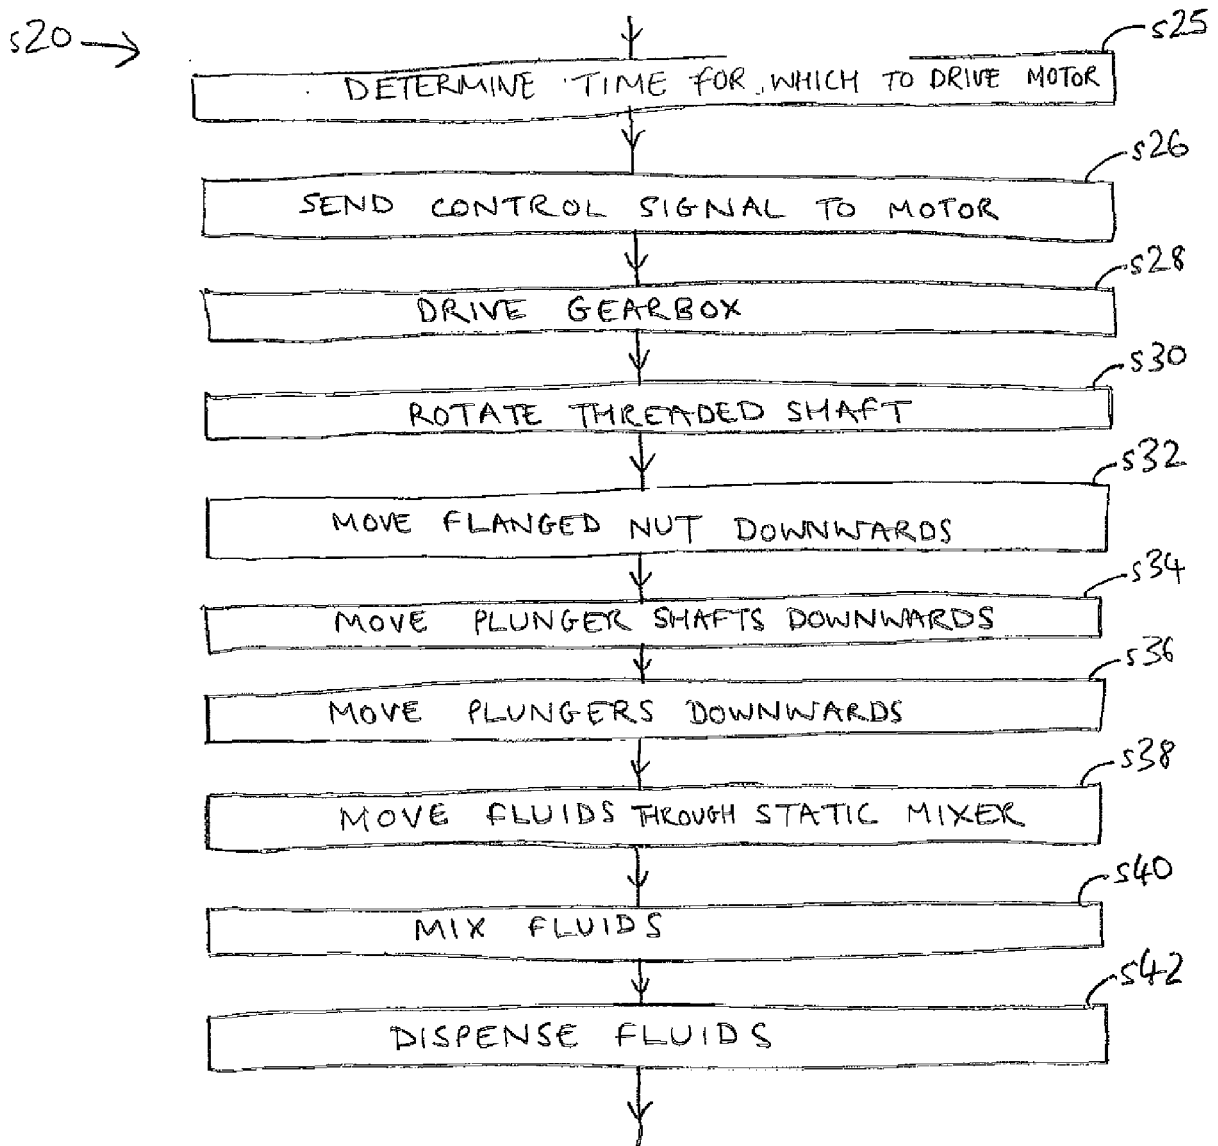 s20
s25
DETERMINE TIME FOR WHICH TO DRIVE MOTOR
s26
SEND CONTROL SIGNAL TO MOTOR
s28
DRIVE GEARBOX
s30
ROTATE THREADED SHAFT
s32
MOVE FLANGED NUT DOWNWARDS
s34
MOVE PLUNGER SHAFTS DOWNWARDS
s36
MOVE PLUNGERS DOWNWARDS
s38
MOVE FLUIDS THROUGH STATIC MIXER
s40
MIX FLUIDS
s42
DISPENSE FLUIDS